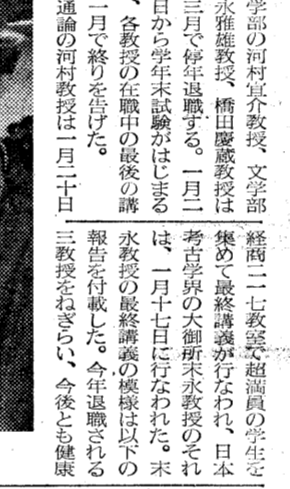 学部の河村宣介教授、文学部
永雅雄教授、橋田慶蔵教授は
三月で停年退職する。一月二
日から学年末試験がはじまる
、各教授の在職中の最後の講
一月で終りを告げた。
通論の河村教授は一月二十日
経商二一七教室で超満員の学生を
集めて最終講義が行なわれ、日本
考古学界の大御所末永教授のそれ
は、一月十七日に行なわれた。末
永教授の最終講義の模様は以下の
報告を付載した。今年退職される
三教授をねぎらい、今後とも健康